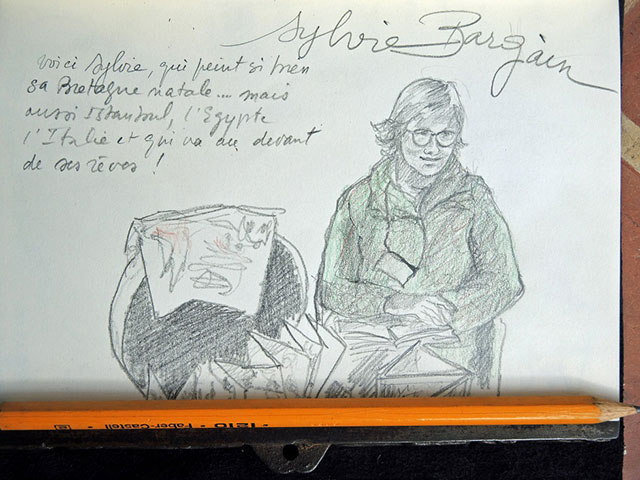 Sylvie Bargain
Voici Sylvie, qui peint si bien
sa Bretagne natale.... mais
aussi Istanbul, l'Egypte
l'Italie et qui va au devant
de ses rêves !
1210 · FABER-CASTELL